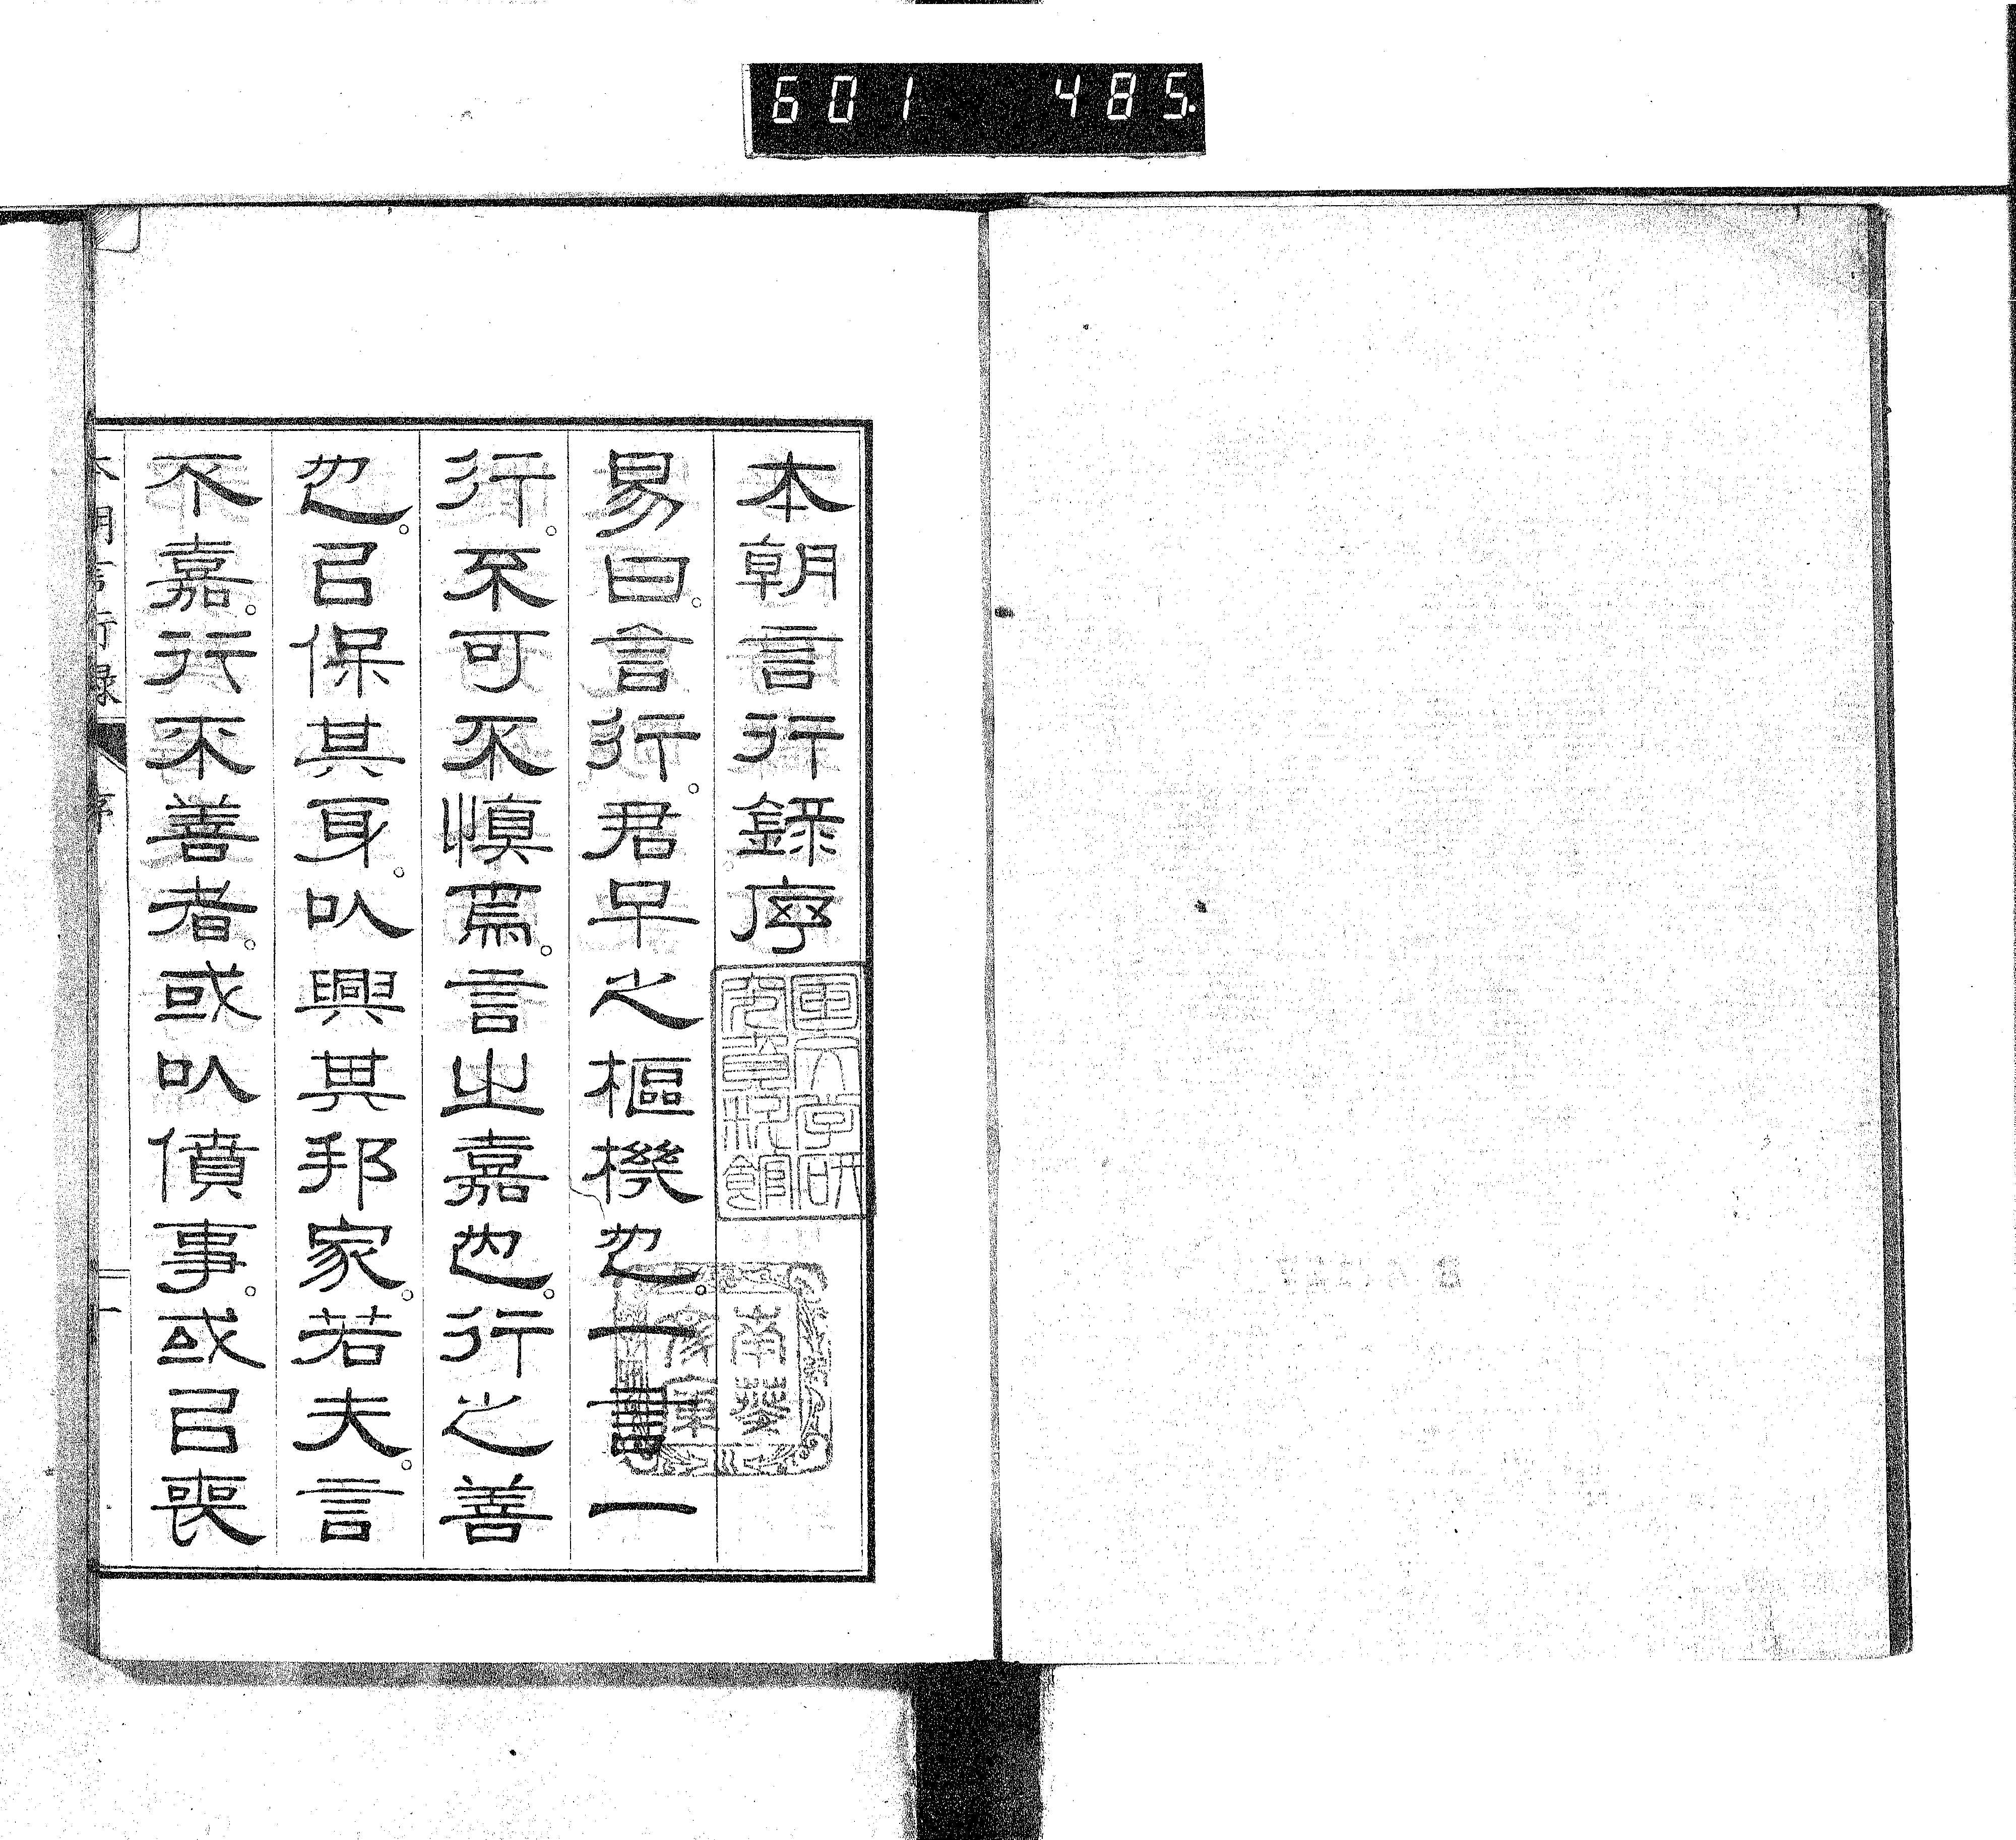 601 485
本朝言行録序
易曰。言行。君子之樞機也。一言一
行。不可不慎焉。言之嘉也。行之善
也。㠯保其身。以興其邦家。若夫。言
不嘉。行不善者。或以僨事。或㠯喪
本朝言行録 序 一